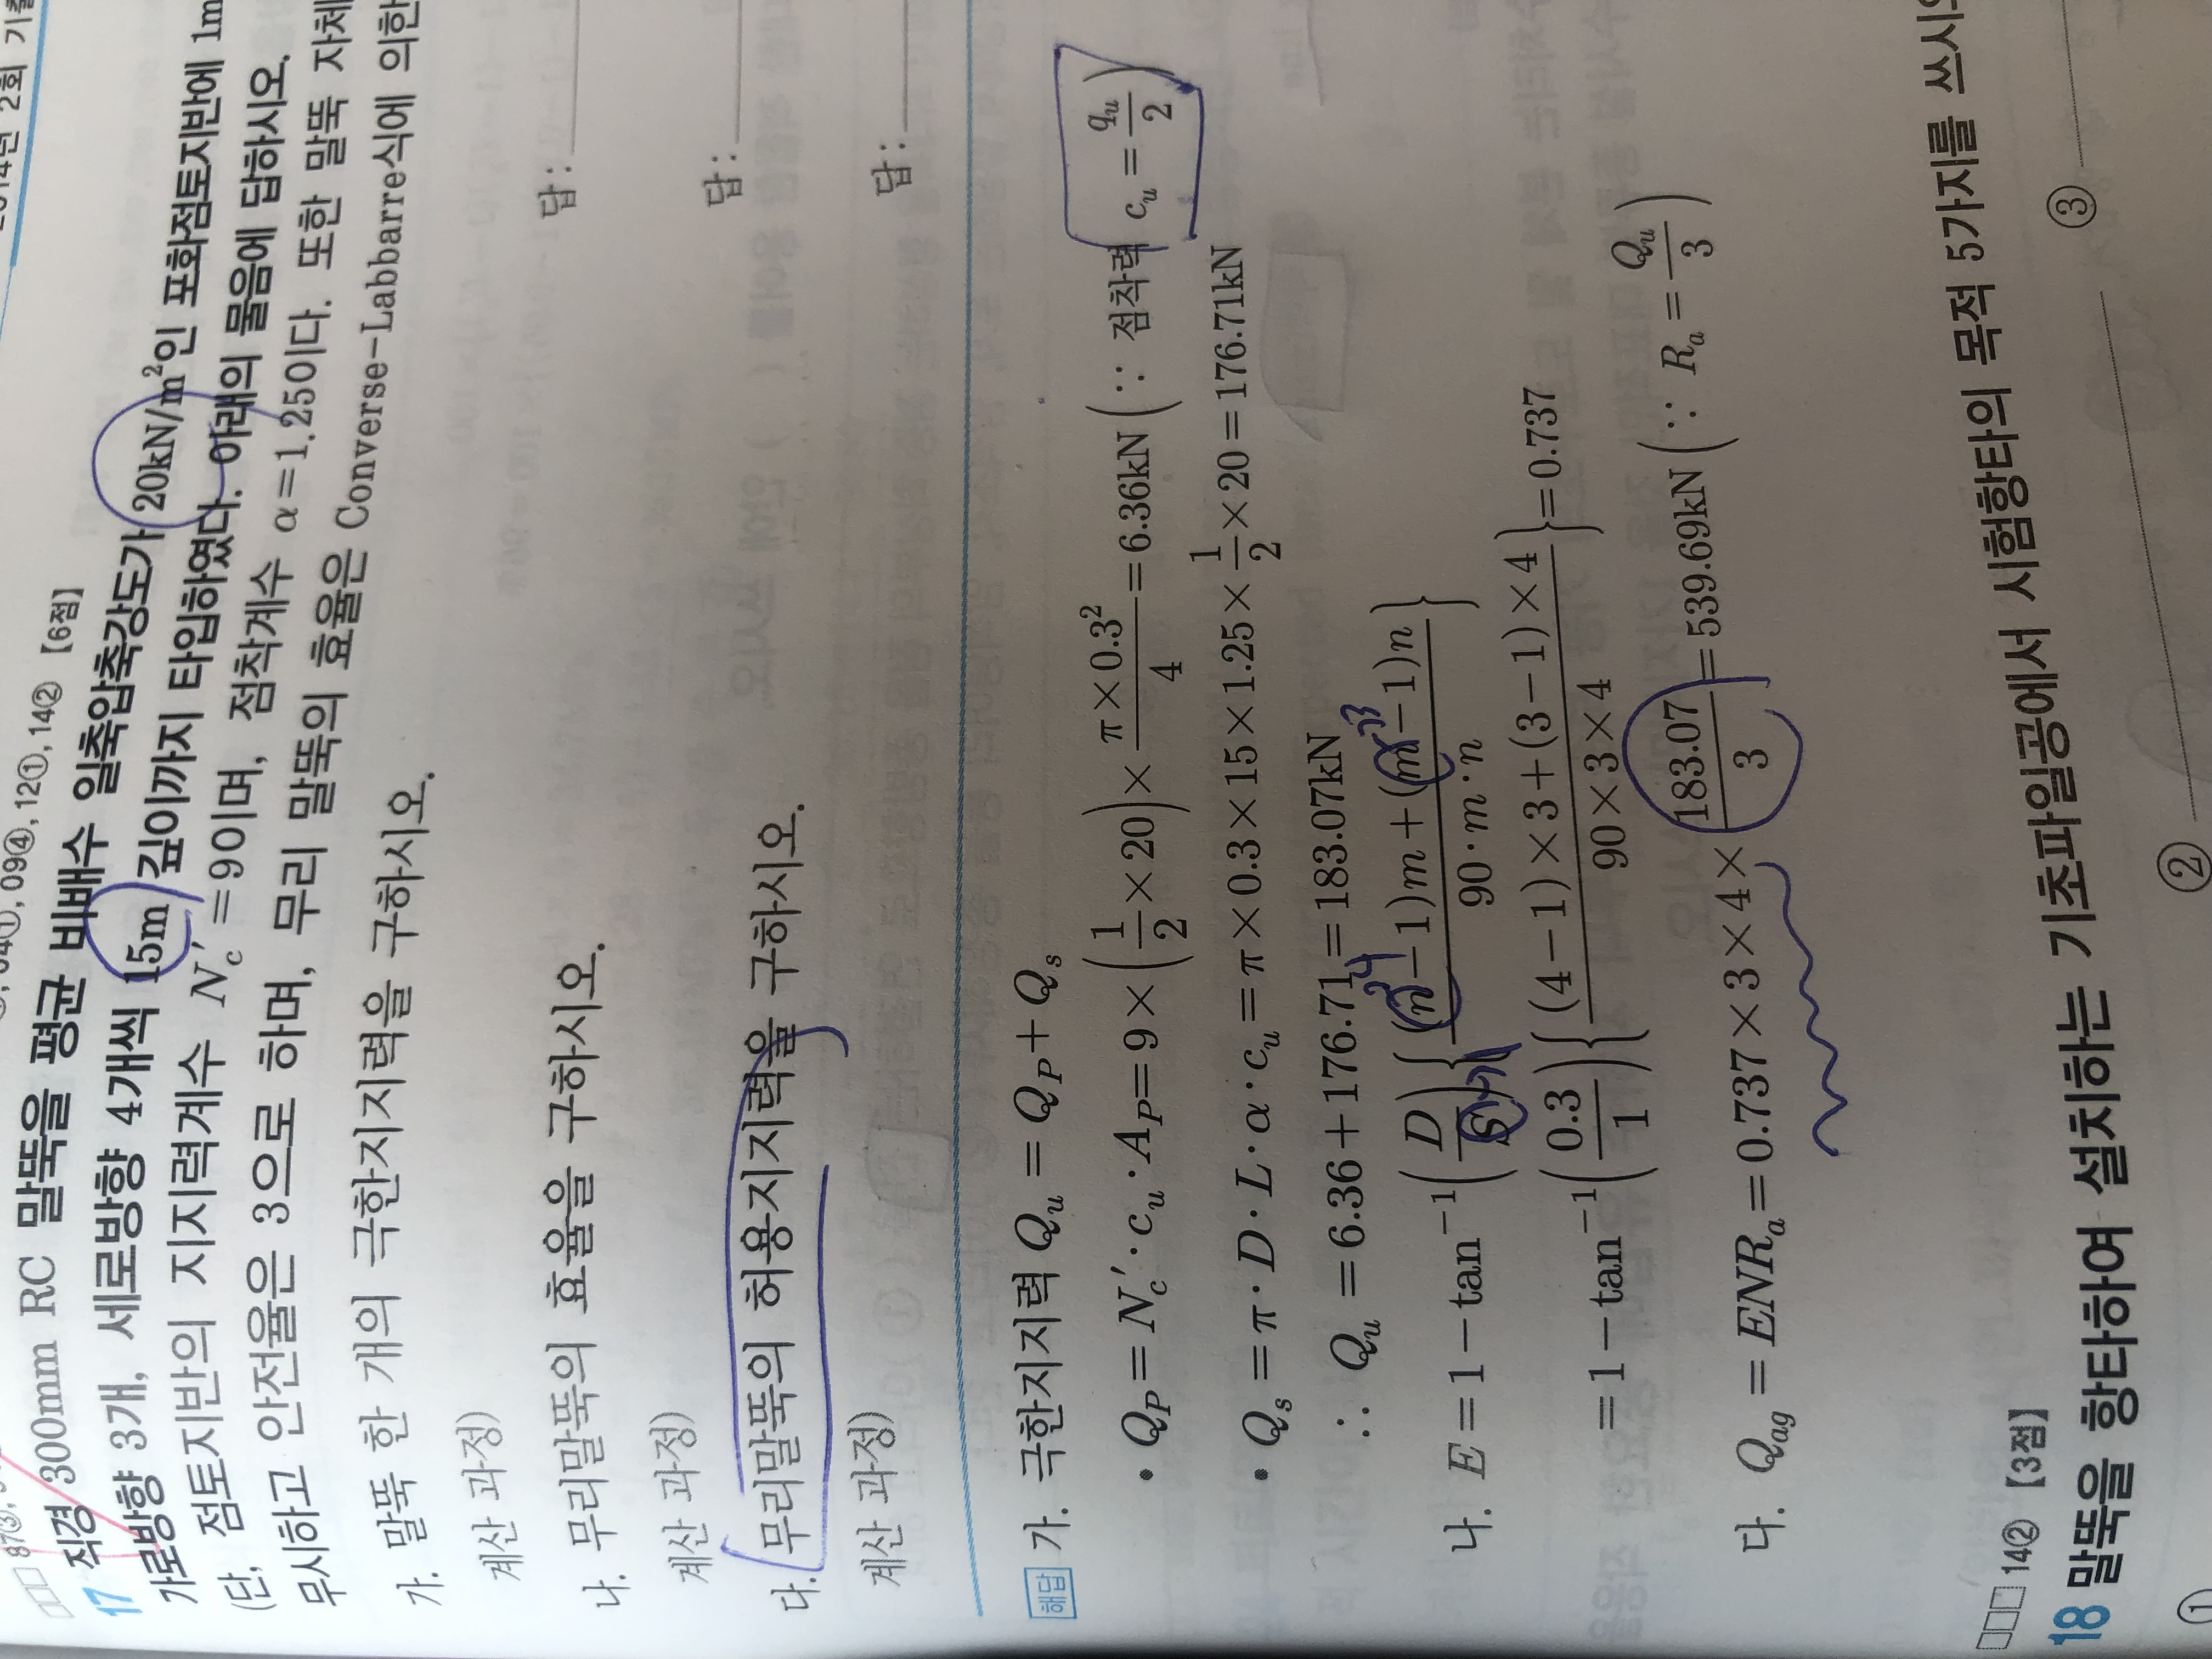 2014년 2회 기출
87③, 94①, 09④, 12①, 14② 【6점】
17 직경 300mm RC 말뚝을 평균 비배수 일축압축강도가 20kN/m²인 포화점토지반에 1m
가로방향 3개, 세로방향 4개씩 15m 깊이까지 타입하였다. 아래의 물음에 답하시오.
(단, 점토지반의 지지력계수 N_c′=9이며, 점착계수 α=1.25이다. 또한 말뚝 자체
무시하고 안전율은 3으로 하며, 무리 말뚝의 효율은 Converse-Labbarre식에 의한
가. 말뚝 한 개의 극한지지력을 구하시오.
계산 과정) 답:
나. 무리말뚝의 효율을 구하시오.
계산 과정) 답:
다. 무리말뚝의 허용지지력을 구하시오.
계산 과정) 답:
해답 가. 극한지지력 Q_u = Q_P + Q_s
• Q_P = N_c′·c_u·A_P = 9×(1/2×20)×π×0.3²/4 = 6.36kN (∵ 점착력 c_u = q_u/2)
• Q_s = π·D·L·α·c_u = π×0.3×15×1.25×1/2×20 = 176.71kN
∴ Q_u = 6.36+176.71 = 183.07kN
나. E = 1−tan⁻¹(D/S){(n−1)m+(m−1)n / 90·m·n}
= 1−tan⁻¹(0.3/1){(4−1)×3+(3−1)×4 / 90×3×4} = 0.737
다. Q_ag = ENR_a = 0.737×3×4×183.07/3 = 539.69kN (∵ R_a = Q_u/3)
14② 【3점】
18 말뚝을 항타하여 설치하는 기초파일공에서 시험항타의 목적 5가지를 쓰시오
① ② ③